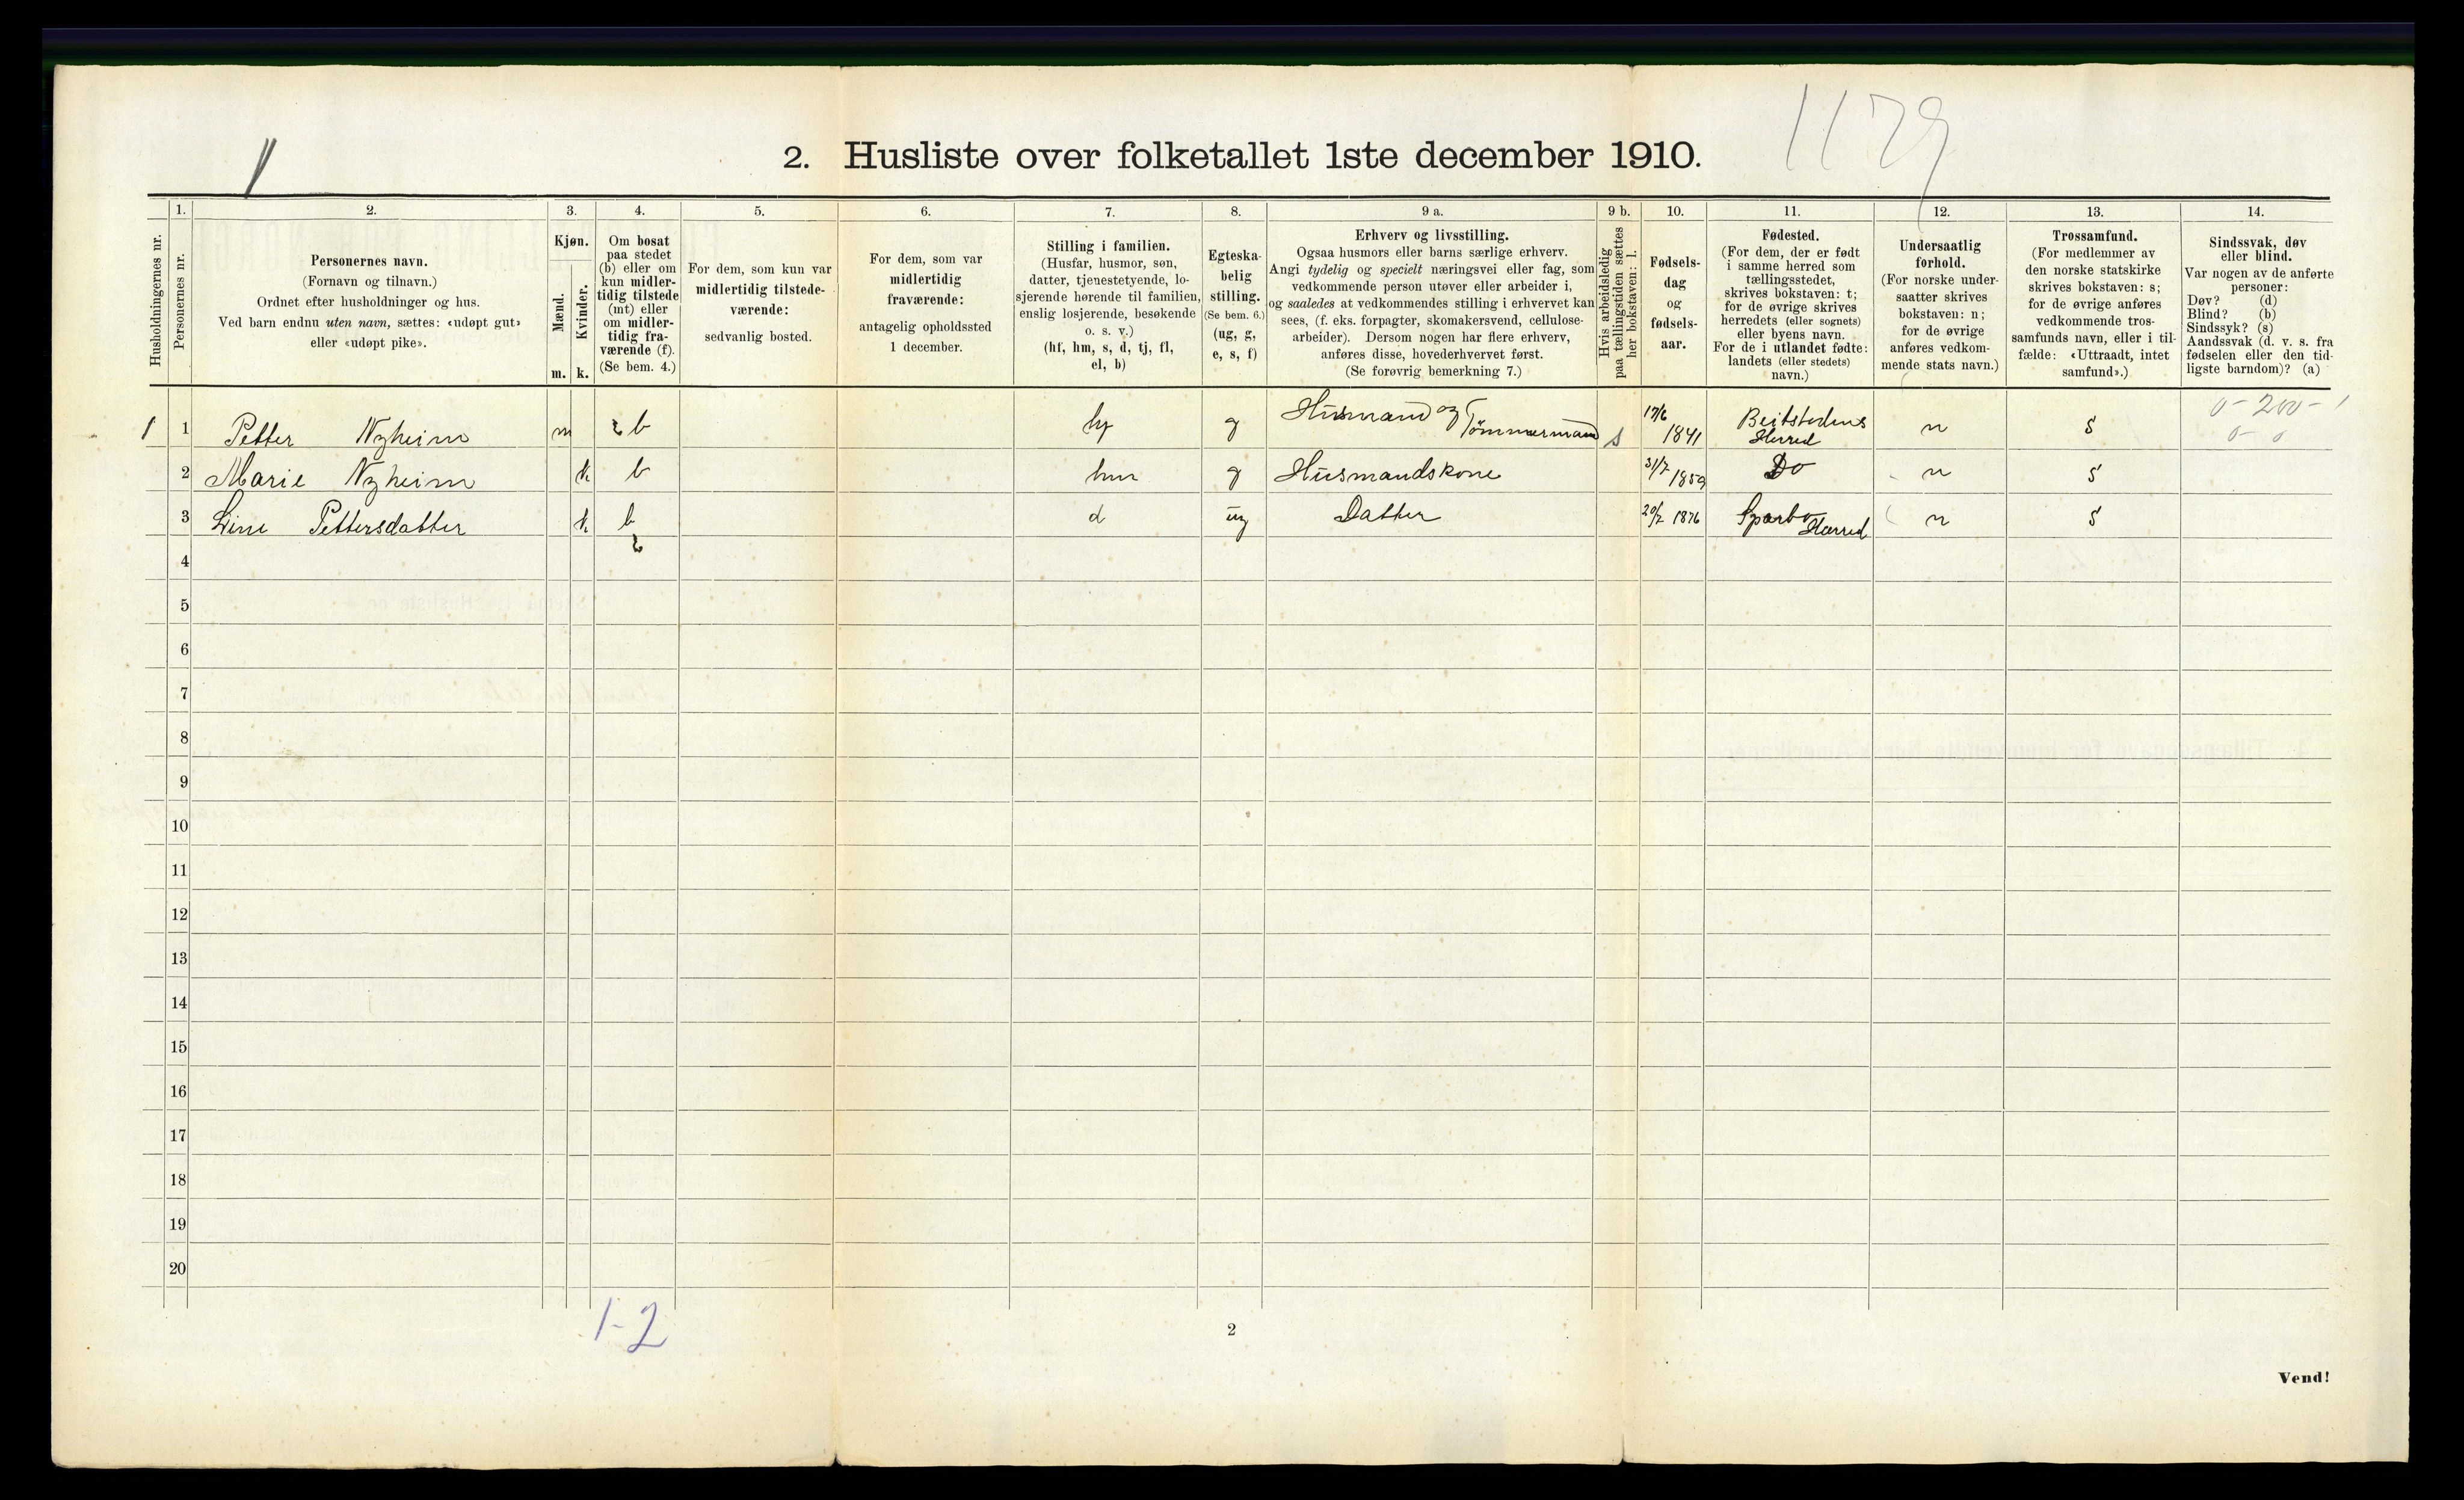 1179
2. Husliste over folketallet 1ste december 1910.
1. 2. 3. 4. 5. 6. 7. 8. 9 a. 9 b. 10. 11. 12. 13. 14.
Husholdningernes nr.
Personernes nr.
Personernes navn.
(Fornavn og tilnavn.)
Ordnet efter husholdninger og hus.
Ved barn endnu uten navn, sættes: «udøpt gut»
eller «udøpt pike».
Kjøn.
Mænd.
Kvinder.
m. k.
Om bosat
paa stedet
(b) eller om
kun midler-
tidig tilstede
(mt) eller
om midler-
tidig fra-
værende (f).
(Se bem. 4.)
For dem, som kun var
midlertidig tilstede-
værende:
sedvanlig bosted.
For dem, som var
midlertidig
fraværende:
antagelig opholdssted
1 december.
Stilling i familien.
(Husfar, husmor, søn,
datter, tjenestetyende, lo-
sjerende hørende til familien,
enslig losjerende, besøkende
o. s. v.)
(hf, hm, s, d, tj, fl,
el, b)
Egteska-
belig
stilling.
(Se bem. 6.)
(ug, g,
e, s, f)
Erhverv og livsstilling.
Ogsaa husmors eller barns særlige erhverv.
Angi tydelig og specielt næringsvei eller fag, som
vedkommende person utøver eller arbeider i,
og saaledes at vedkommendes stilling i erhvervet kan
sees, (f. eks. forpagter, skomakersvend, cellulose-
arbeider). Dersom nogen har flere erhverv,
anføres disse, hovederhvervet først.
(Se forøvrig bemerkning 7.)
Hvis arbeidsledig
paa tællingstiden sættes
her bokstaven: l.
Fødsels-
dag
og
fødsels-
aar.
Fødested.
(For dem, der er født
i samme herred som
tællingsstedet,
skrives bokstaven: t;
for de øvrige skrives
herredets (eller sognets)
eller byens navn.
For de i utlandet fødte:
landets (eller stedets)
navn.)
Undersaatlig
forhold.
(For norske under-
saatter skrives
bokstaven: n;
for de øvrige
anføres vedkom-
mende stats navn.)
Trossamfund.
(For medlemmer av
den norske statskirke
skrives bokstaven: s;
for de øvrige anføres
vedkommende tros-
samfunds navn, eller i til-
fælde: «Uttraadt, intet
samfund».)
Sindssvak, døv
eller blind.
Var nogen av de anførte
personer:
Døv? (d)
Blind? (b)
Sindssyk? (s)
Aandssvak (d. v. s. fra
fødselen eller den tid-
ligste barndom)? (a)
1 1 Petter Nyheim m b hf g Husmand og Tømmermand s 17/6 1841 Beitstedens Herred n s 0-200-1
0-0
2 Marie Nyheim k b hm g Husmandskone 31/7 1859 Do n s
3 Line Pettersdatter k b d ug Datter 20/2 1876 Sparbo Herred n s
4
5
6
7
8
9
10
11
12
13
14
15
16
17
18
19
20
1-2
2
Vend!